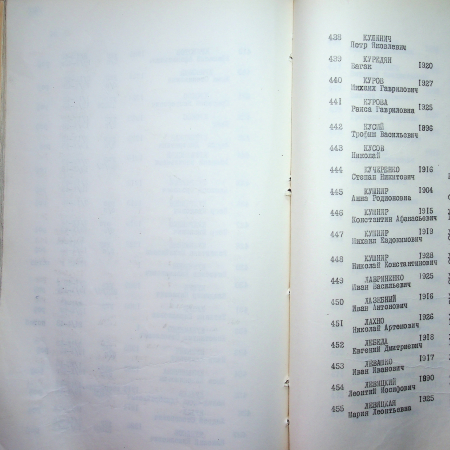 438 КУЛИНИЧ
Петр Яковлевич
439 КУРИДЯН
Ваган 1920
440 КУРОВ 1927
Михаил Гаврилович
441 КУРОВА 1925
Раиса Гавриловна
442 КУСИЙ 1896
Трофим Васильевич
443 КУСОВ
Николай
444 КУЧЕРЕНКО 1916
Степан Никитович
445 КУШНИР 1904
Анна Родионовна
446 КУШНИР 1915
Константин Афанасьевич
447 КУШНИР 1919
Михаил Евдокимович
448 КУШНИР 1928
Николай Константинович
449 ЛАВРИНЕНКО 1925
Иван Васильевич
450 ЛАЗЕБНИЙ 1916
Иван Антонович
451 ЛАХНО 1926
Николай Артемович
452 ЛЕБЕДА 1918
Евгений Дмитриевич
453 ЛЕВАНКО 1917
Иван Иванович
454 ЛЕВИЦКИЙ 1890
Леонтий Иосифович
455 ЛЕВИЦКАЯ 1925
Мария Леонтьевна